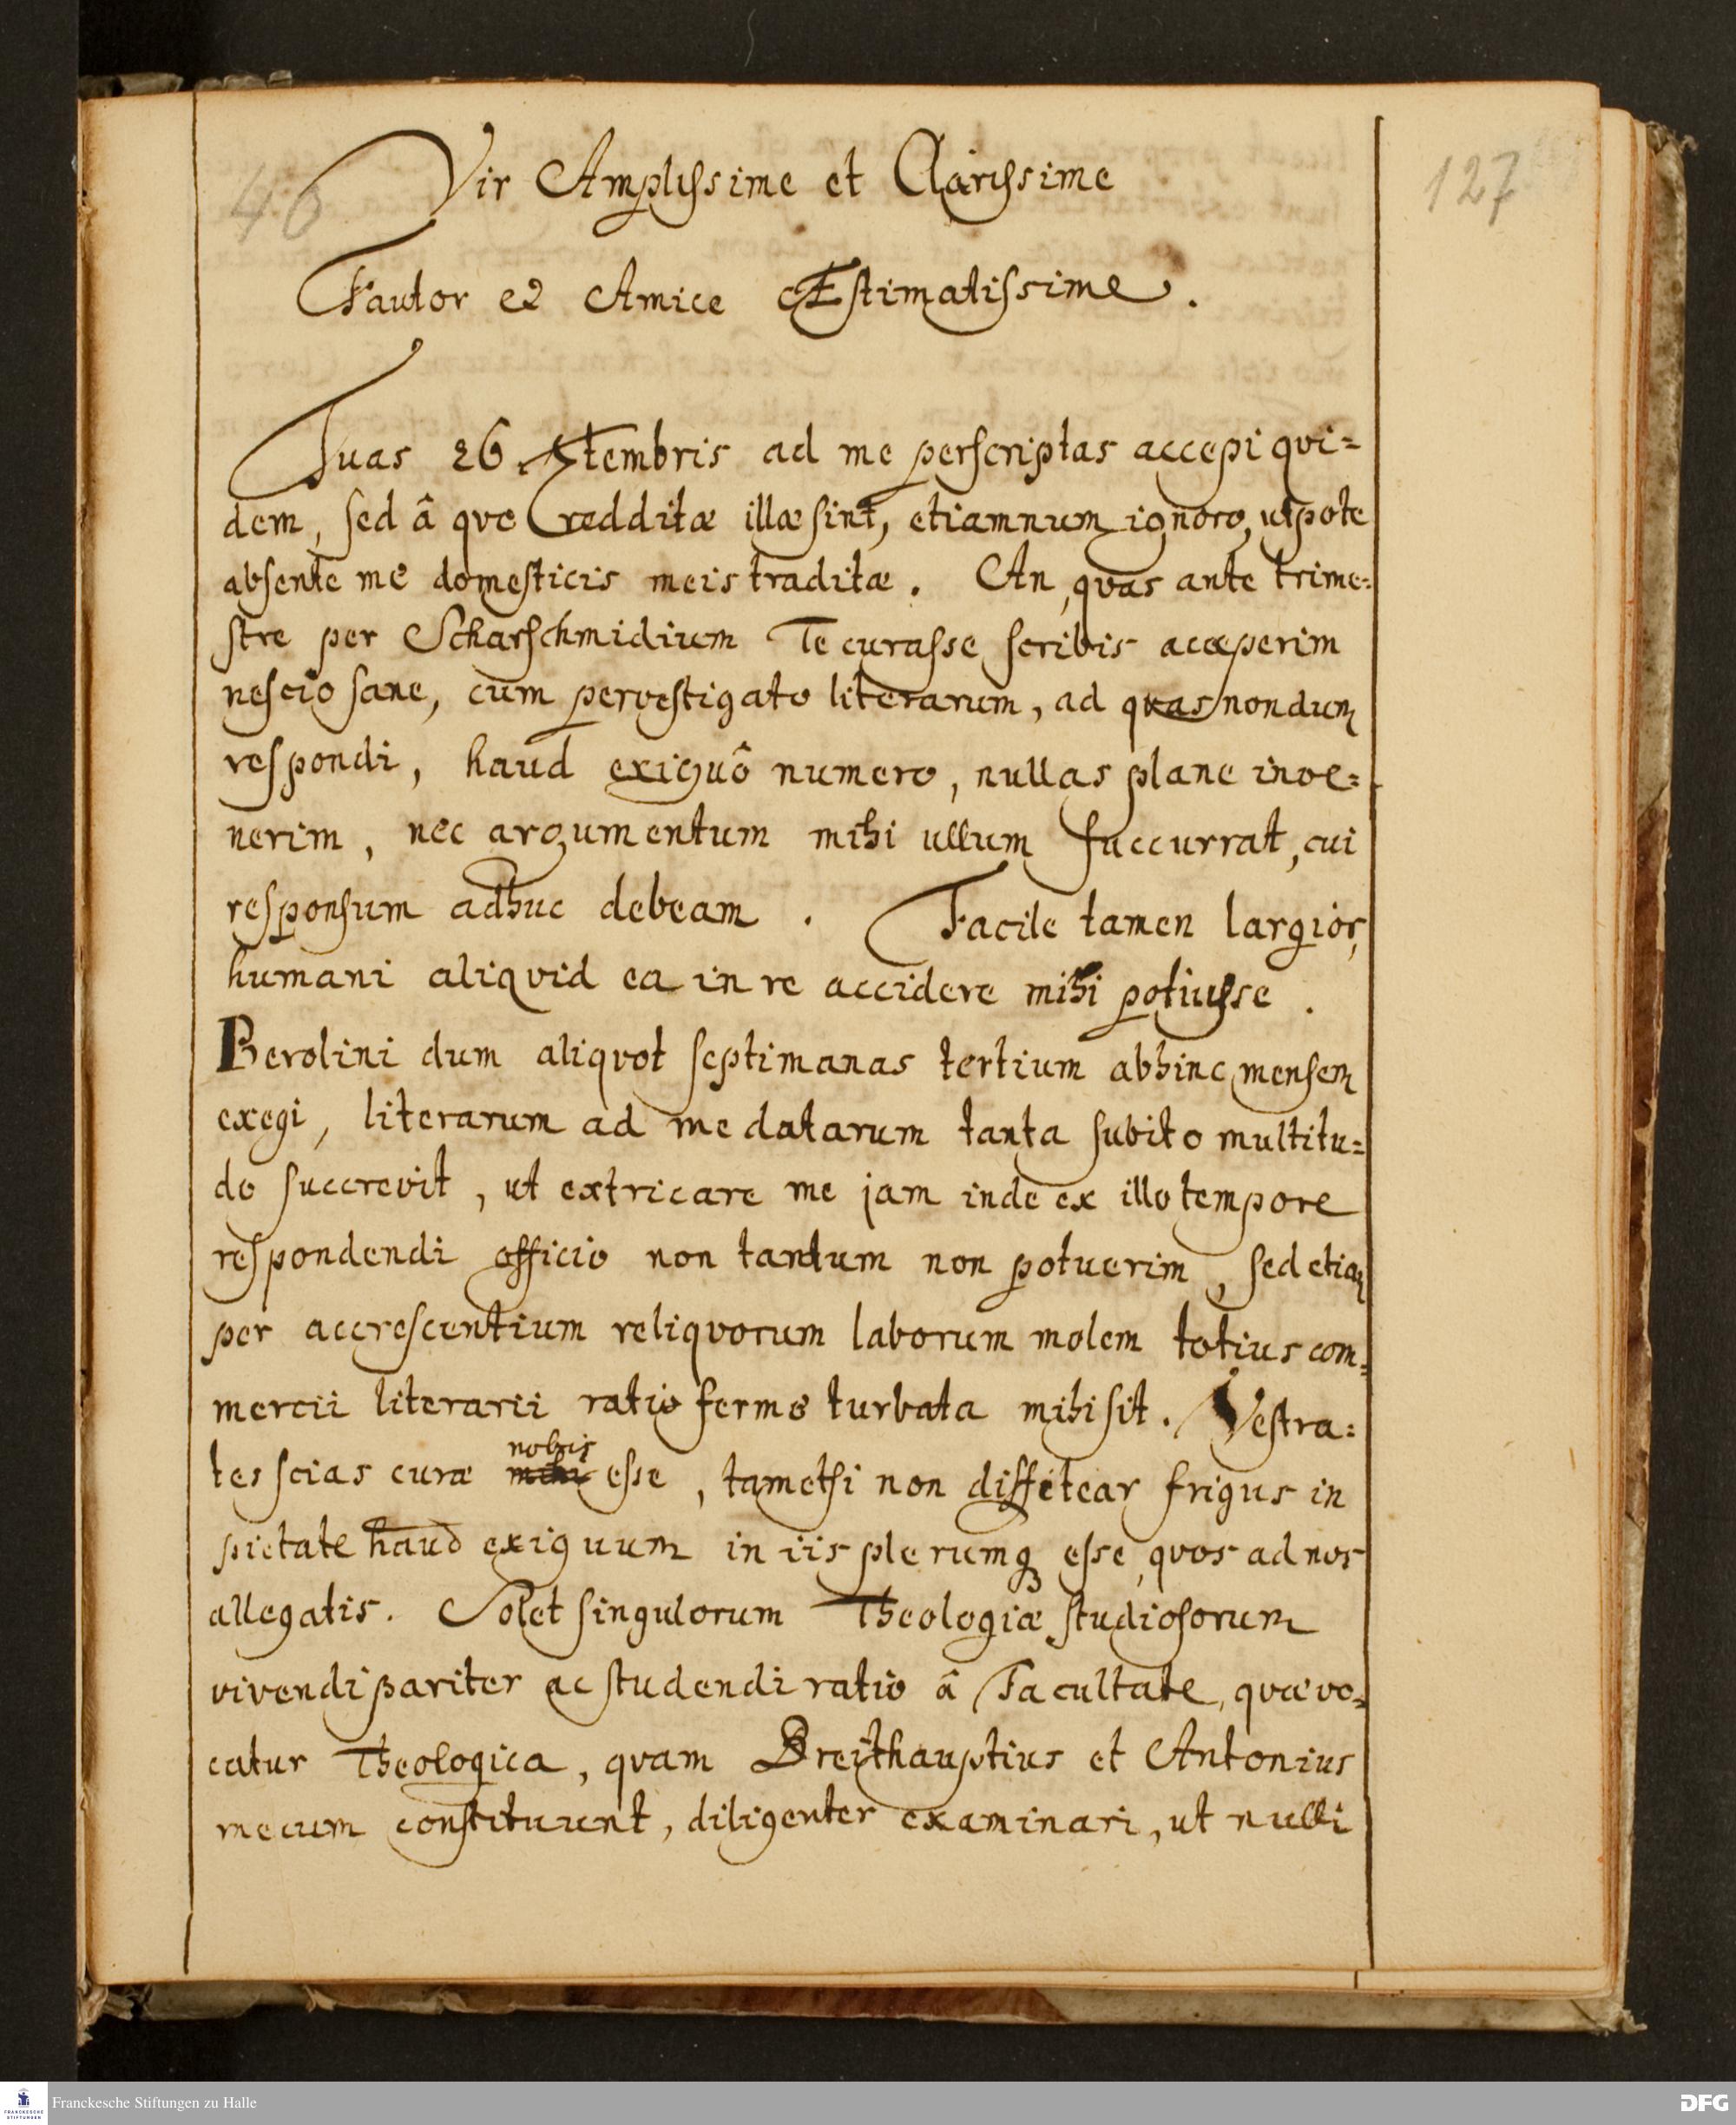 46
127
Vir Amplissime et Clarissime
Fautor et Amice Æstimatissime.
Tuas 26 7tembris ad me perscriptas accepi qvi=
dem, sed â qvo redditæ illæ sint, etiamnum ignoro, utpote
absente me domesticis meis traditæ. An, qvas ante trime=
stre per Scharschmidium Te curasse scribis acceperim
nescio sane, cum pervestigato literarum, ad quas nondum
respondi, haud exiguô numero, nullas plane inve=
nerim, nec argumentum mihi ullum succurrat, cui
responsum adhuc debeam. Facile tamen largior,
humani aliqvid ea in re accidere mihi potuisse.
Berolini dum aliqvot septimanas tertium abhinc mensem
exegi, literarum ad me datarum tanta subito multitu=
do succrevit, ut extricare me jam inde ex illo tempore
respondendi officio non tantum non potuerim, sed etiam
per accrescentium reliqvorum laborum molem totius com=
mercii literarii ratio ferme turbata mihi sit. Vestra=
nobis
tes scias curæ mihi esse, tametsi non diffitear frigus in
pietate haud exiguum in iis plerumq esse, qvos ad nos
allegatis. Solet singulorum Theologiæ studiosorum
vivendi pariter ac studendi ratio â Facultate, qvæ vo=
catur Theologica, qvam Breithauptius et Antonius
mecum constituunt, diligenter examinari, ut nulli
FRANCKESCHE
STIFTUNGEN
Franckesche Stiftungen zu Halle
DFG